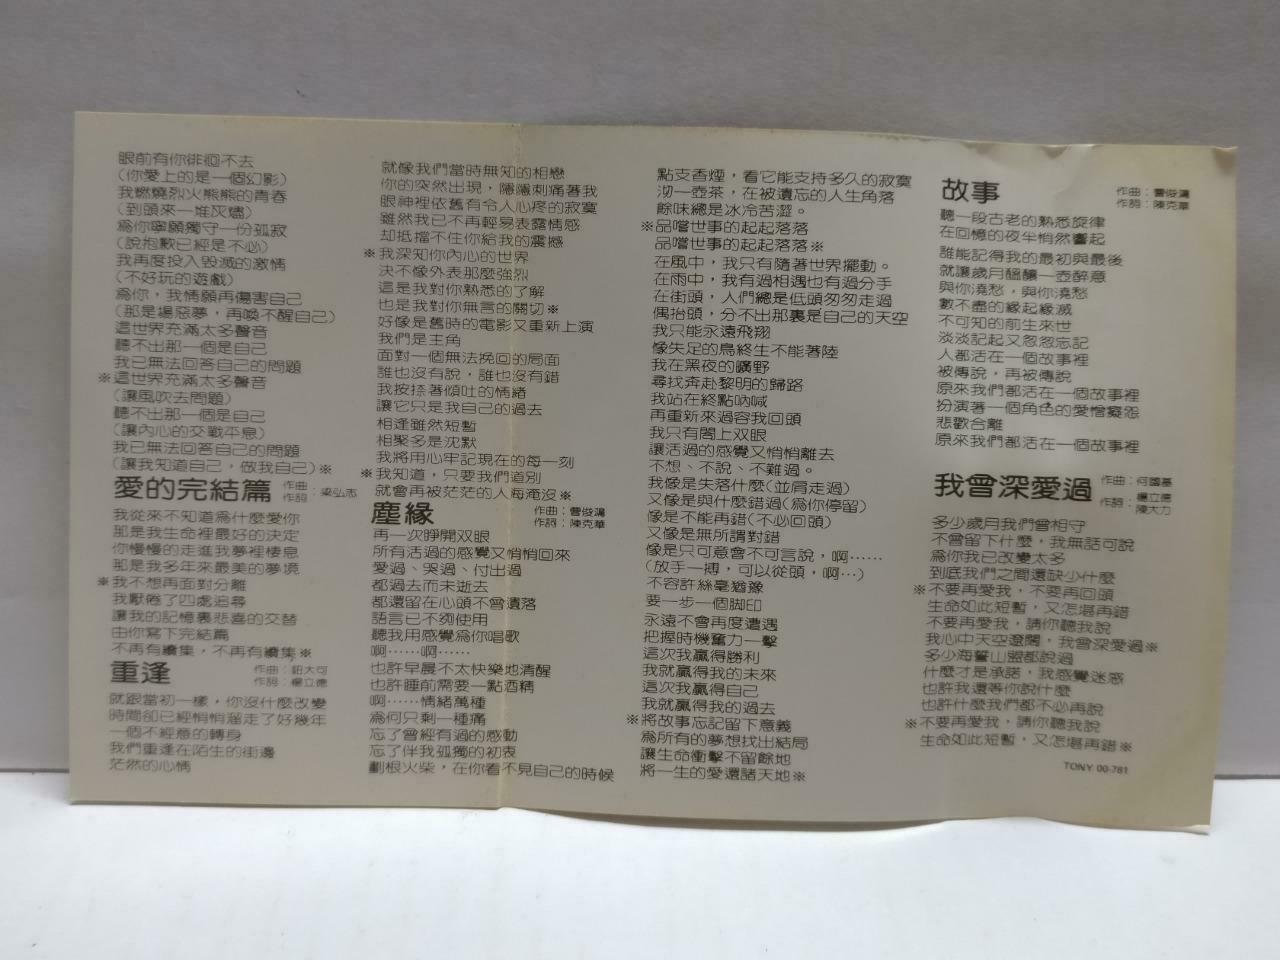 眼前有你徘徊不去
(你愛上的是一個幻影)
我燃燒烈火熊熊的青春
(到頭來一堆灰燼)
為你寧願獨守一份孤寂
(說抱歉已經是不必)
我再度投入毀滅的激情
(不好玩的遊戲)
為你，我情願再傷害自己
(那是場惡夢，再喚不醒自己)
這世界充滿太多聲音
聽不出那一個是自己
我已無法回答自己的問題
※這世界充滿太多聲音
(讓風吹去問題)
聽不出那一個是自己
(讓內心的交戰平息)
我已無法回答自己的問題
(讓我知道自己，做我自己)※
愛的完結篇
作曲
作詞：梁弘志
我從來不知道為什麼愛你
那是我生命裡最好的決定
你慢慢的走進我夢裡棲息
那是我多年來最美的夢境
※我不想再面對分離
我厭倦了四處追尋
讓我的記憶裏悲喜的交替
由你寫下完結篇
不再有續集，不再有續集※
重逢
作曲：鈕大可
作詞：楊立德
就跟當初一樣，你沒什麼改變
時間卻已經悄悄溜走了好幾年
一個不經意的轉身
我們重逢在陌生的街邊
茫然的心情
就像我們當時無知的相戀
你的突然出現，隱隱刺痛著我
眼神裡依舊有令人心疼的寂寞
雖然我已不再輕易表露情感
却抵擋不住你給我的震撼
※我深知你內心的世界
決不像外表那麼強烈
這是我對你熟悉的了解
也是我對你無言的關切※
好像是舊時的電影又重新上演
我們是主角
面對一個無法挽回的局面
誰也沒有說，誰也沒有錯
我按捺著傾吐的情緒
讓它只是我自己的過去
相逢雖然短暫
相聚多是沈默
我將用心牢記現在的每一刻
※我知道，只要我們道別
就會再被茫茫的人海淹沒※
塵緣
作曲：曹俊鴻
作詞：陳克華
再一次睜開双眼
所有活過的感覺又悄悄回來
愛過、哭過、付出過
都過去而未逝去
都還留在心頭不曾遺落
語言已不夠使用
聽我用感覺為你唱歌
啊⋯⋯啊⋯⋯
也許早晨不太快樂地清醒
也許睡前需要一點酒精
啊⋯⋯情緒萬種
為何只剩一種痛
忘了曾經有過的感動
忘了伴我孤獨的初衷
劃根火柴，在你看不見自己的時候
點支香煙，看它能支持多久的寂寞
沏一壺茶，在被遺忘的人生角落
餘味總是冰冷苦澀。
※品嚐世事的起起落落
品嚐世事的起起落落※
在風中，我只有隨著世界擺動。
在雨中，我有過相遇也有過分手
在街頭，人們總是低頭匆匆走過
偶抬頭，分不出那裏是自己的天空
我只能永遠飛翔
像失足的鳥終生不能著陸
我在黑夜的曠野
尋找奔赴黎明的歸路
我站在終點吶喊
再重新來過容我回頭
我只有閤上双眼
讓活過的感覺又悄悄離去
不想、不說、不難過。
我像是失落什麼(並肩走過)
又像是與什麼錯過(為你停留)
像是不能再錯(不必回頭)
又像是無所謂對錯
像是只可意會不可言說，啊⋯⋯
(放手一搏，可以從頭，啊⋯)
不容許絲毫猶豫
要一步一個脚印
永遠不會再度遭遇
把握時機奮力一擊
這次我贏得勝利
我就贏得我的未來
這次我贏得自己
我就贏得我的過去
※將故事忘記留下意義
為所有的夢想找出結局
讓生命衝擊不留餘地
將一生的愛還諸天地※
故事
作曲：曹俊鴻
作詞：陳克華
聽一段古老的熟悉旋律
在回憶的夜半悄然響起
誰能記得我的最初與最後
就讓歲月醞釀一壺醉意
與你澆愁，與你澆愁
數不盡的緣起緣滅
不可知的前生來世
淡淡記起又忽忽忘記
人都活在一個故事裡
被傳說，再被傳說
原來我們都活在一個故事裡
扮演著一個角色的愛憎癡怨
悲歡合離
原來我們都活在一個故事裡
我曾深愛過
作曲：何國基
作詞：楊立德
陳大力
多少歲月我們曾相守
不曾留下什麼，我無話可說
為你我已改變太多
到底我們之間還缺少什麼
※不要再愛我，不要再回頭
生命如此短暫，又怎堪再錯
不要再愛我，請你聽我說
我心中天空遼闊，我曾深愛過※
多少海誓山盟都說過
什麼才是承諾，我感覺迷惑
也許我還等你說什麼
也許什麼我們都不必再說
※不要再愛我，請你聽我說
生命如此短暫，又怎堪再錯※
TONY 00-781